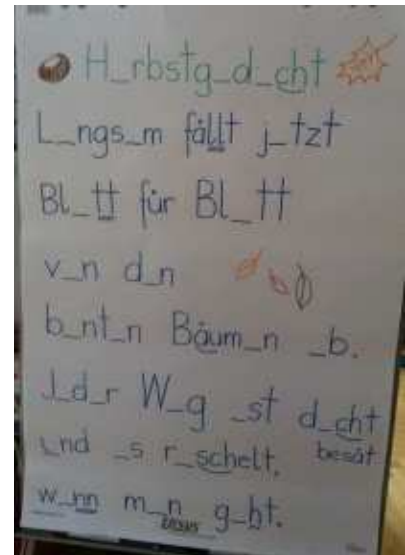 H_rbstg_d_cht
L_ngs_m fällt j_tzt
Bl_tt für Bl_tt
v_n d_n
b_nt_n Bäum_n _b.
J_d_r W_g _st d_cht
besät
_nd _s r_schelt,
w_nn m_n g_ht.